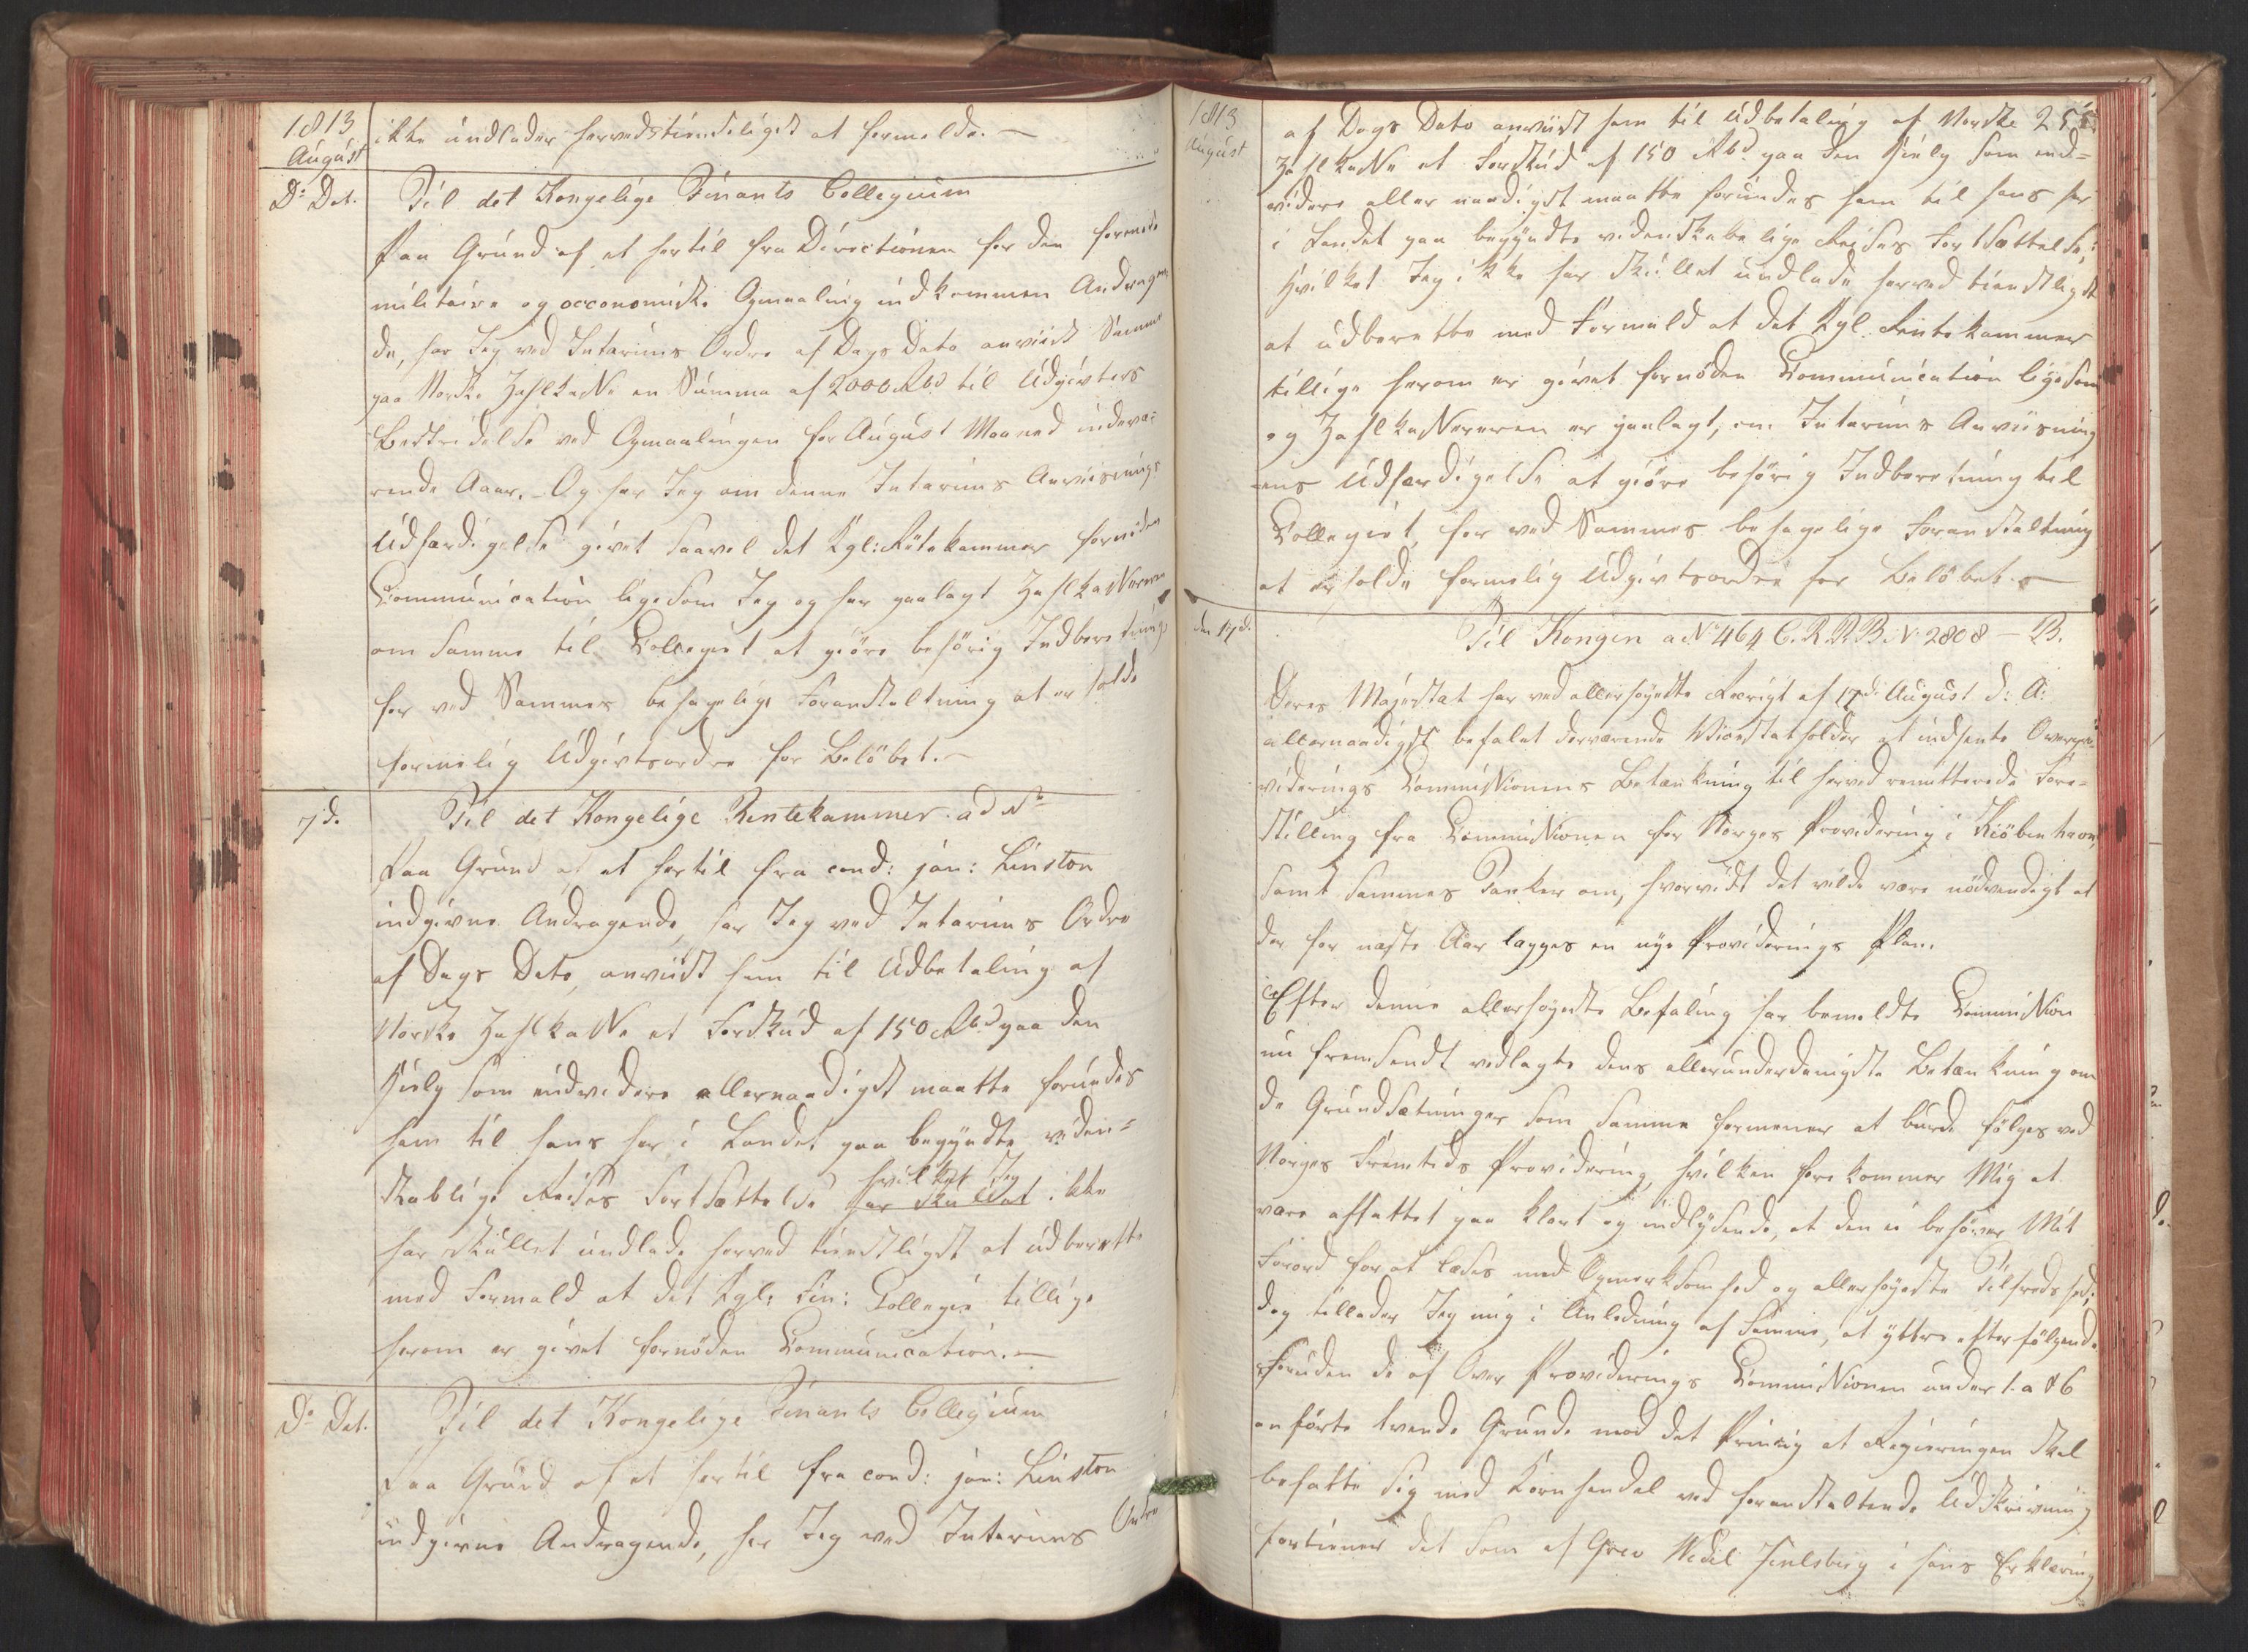 1813
August
ikke undlader herved tienstligst at formelde. —
Do Dat.
Til det Kongelige Finants Collegium
Paa Grund af et hertil fra Directionen for den forenede
militaire og oeconomiske Opmaaling indkommen Andragen-
de, har Jeg ved Interims Ordre af Dags Dato anviist
paa Norske Zahlkasse en Summa af 2000 Rbd til Udgivters
Bestridelse ved Opmaalingen for August Maaned indevæ-
rende Aar. Og har Jeg om denne Interims Anviisnings
Udfærdigelse givet saavel det Kgl: Rentekammer fornøden
Communication ligesom Jeg og har paalagt Zahlkasseren
om samme til Collegiet at giöre behörig Indberetning
for ved Sammes behagelige Foranstaltning at erholde
formelig Udgivtsordre for Belöbet. —
7d.
Til det Kongelige Rentekammer ad No
Paa Grund af et hertil fra cond: jun: Linstow
indgivne Andragende, har Jeg ved Interims Ordre
af Dags Dato, anviist ham til Udbetaling af
Norske Zahlkasse et Forskud af 150 Rbd paa den
Hielp som endvidere allernaadigst maatte forundes
ham til hans her i Landet paa begyndte viden-
skablige Reises Fortsættelse hvilket Jeg
har skullet ikke
har skullet undlade herved tienstligst at udberette
med Formeld at det Kgl: Fin: Collegie tillige
herom er givet fornöden Communication. —
Do Dat.
Til det Kongelige Finants Collegium
Paa Grund af et hertil fra cond: jun: Linstow
indgivne Andragende, har Jeg ved Interims Ordre
1813
August
af Dags Dato anviist ham til Udbetaling af Norske
Zahlkasse et Forskud af 150 Rbd. paa den Hielp som end-
videre allernaadigst maatte forundes ham til hans her
i Landet paa begyndte videnskabelige Reises Fortsættelse;
hvilket Jeg ikke har skullet undlade herved tienstligst
at udberette med Formeld at det Kgl. Rentekammer
tillige herom er givet fornöden Communication ligesom
og Zahlkassereren er paalagt, om Interims Anviisning
ens Udfærdigelse at giöre behörig Indberetning til
Collegiet, for ved Sammes behagelige Foranstaltning
at erholde formelig Udgivtsordre for Belöbet. —
den 17d.
Til Kongen a No 464 C. R. P. B. No 2808 — B.
Deres Majestæt har ved allerhöyeste Rescript af 17d August d: A:
allernaadigst befalet derværende Vicestatholder at indhente Overpro-
viderings Commissionens Betænkning til herved remitterede Fore-
stilling fra Commissionen for Norges Providering i Kiöbenhavn,
samt sammes Tanker om, hvorvidt det vilde være nödvendigt at
der for næste Aar lægges en nye Providerings Plan.
Efter denne allerhöyeste Befaling har bemeldte Commission
nu fremsendt vedlagte dens allerunderdanigste Betænkning om
de Grundsætninger som samme formener at burde fölges ved
Norges Fremtids Providering, hvilken forekommer Mig at
være affattet paa klart og indlysende, at den ei behöver Mit
Forord for at læses med Opmærksomhed og allerhöyeste Tilfredshed;
dog tillader Jeg mig i Anledning af Samme, at yttre efterfölgende
Foruden de af Over Providerings Commissionen under 1. a & b
anförte tvende Grunde mod det Princip at Regieringen skal
befatte sig med Kornhandel ved foranstaltende Udskrivning
fortiener det som af Grev Wedel Jarlsberg i hans Erklæring